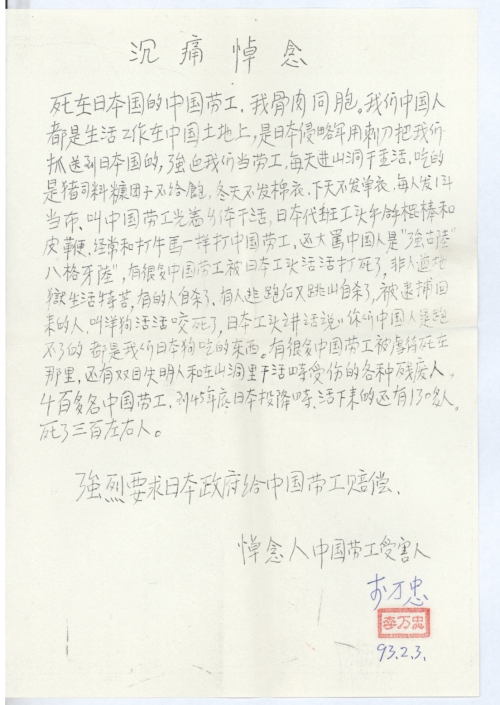 沉痛悼念
死在日本国的中国劳工，我骨肉同胞。我们中国人
都是生活工作在中国土地上，是日本侵略军用刺刀把我们
抓送到日本国的，強迫我们当劳工，每天进山洞干至活，吃的
是猪司料糠团子不给飽，冬天不发棉衣、下天不发单衣，每人发1斗
当布、叫中国劳工光着体干活，日本代表工头午棒和
皮鞭、经常和打牛馬一样打中国劳工，还大罵中国人是“強古陸”
八格牙陸”，有很多中国劳工被日本工头活活打死了，非人道地
獄生活特苦，有的人自杀了，有人逃跑后又跳山自杀了，被逮捕回
来的人，叫洋狗活活咬死了，日本工头讲话说：你们中国人是跑
不了的都是我们日本狗吃的東西。有很多中国劳工被虐待死在
那里，还有双目失明人和在山洞里干活時受伤的各种残废人。
4百多名中国劳工，到45年底日本投降時、活下来的还有130多人。
死了三百左右人。
強烈要求日本政府给中国劳工赔偿、
悼念人中国劳工受害人
李万忠
李万忠
93.2.3.